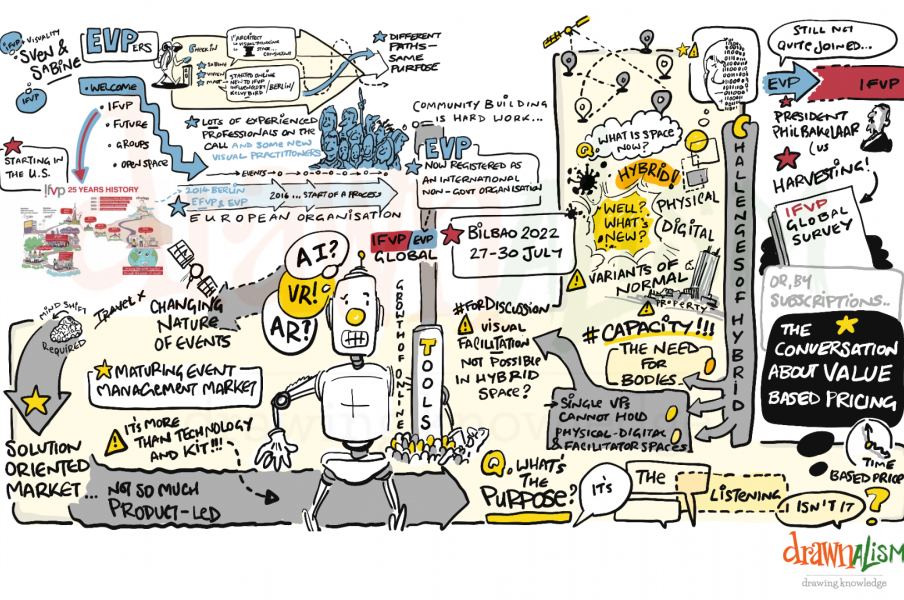 IFVP
VISUALITY
SVEN &
SABINE
IFVP
EVPERS
CHECK IN
1st ARCHITECT
VISUAL THINKING
STAGE...
CONSULTANT
SABINE
STARTED ONLINE
NEW TO IFVP
INFLUENCED BY
KELVY BIRD / BERLIN /
DIFFERENT
PATHS -
SAME
PURPOSE
• WELCOME
• IFVP
• FUTURE
• GROUPS
• OPEN SPACE
STARTING IN
THE U.S.
ifvp 25 YEARS HISTORY
LOTS OF EXPERIENCED
PROFESSIONALS ON THE
CALL AND SOME NEW
VISUAL PRACTITIONERS
EVENTS
2014 BERLIN
EFVP & EVP
2016... START OF A PROCESS
EUROPEAN ORGANISATION
COMMUNITY BUILDING
IS HARD WORK...
EVP
NOW REGISTERED AS
AN INTERNATIONAL
NON-GOVT ORGANISATION
IFVP/EVP
GLOBAL
BILBAO 2022
27-30 JULY
Q. WHAT IS SPACE
NOW?
HYBRID!
PHYSICAL
DIGITAL
WELL?
WHAT'S
NEW?
VARIANTS OF
NORMAL
PROPERTY
#CAPACITY!!!
THE NEED
FOR
BODIES...
→ SINGLE VPs
CANNOT HOLD
PHYSICAL-DIGITAL
& FACILITATOR SPACES
CHALLENGES OF HYBRID
STILL NOT
QUITE JOINED...
EVP
IFVP
PRESIDENT
PHIL BAKELAAR
(US
HARVESTING!
IFVP
GLOBAL
SURVEY
OR, BY
SUBSCRIPTIONS...
THE
CONVERSATION
ABOUT VALUE
BASED PRICING
TIME
BASED PRICING
I ISN'T IT
?
MIND SHIFT
REQUIRED
TRAVEL X
CHANGING
NATURE
OF EVENTS
AI?
VR!
AR?
GROWTH OF ONLINE
TOOLS
#FORDISCUSSION
VISUAL
FACILITATION
NOT POSSIBLE
IN HYBRID
SPACE?
MATURING EVENT
MANAGEMENT MARKET
IT'S MORE
THAN TECHNOLOGY
AND KIT!!!
SOLUTION
ORIENTED
MARKET...
NOT SO MUCH
PRODUCT-LED
Q. WHAT'S
THE
PURPOSE?
IT'S
THE
LISTENING
drawnalism
drawing knowledge